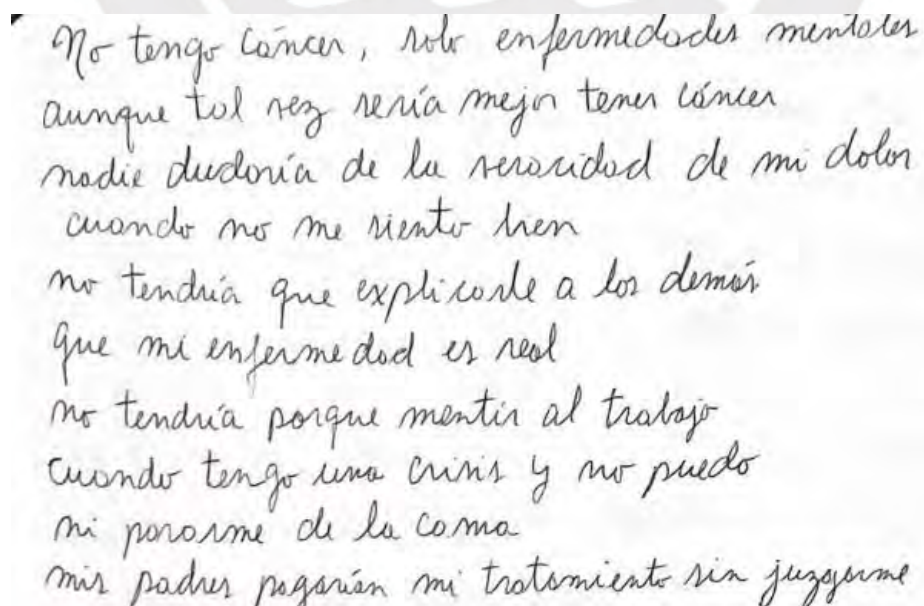 No tengo cáncer, solo enfermedades mentales
aunque tal vez sería mejor tener cáncer
nadie dudaría de la veracidad de mi dolor
cuando no me siento bien
no tendría que explicarle a los demás
que mi enfermedad es real
no tendría porque mentir al trabajo
cuando tengo una crisis y no puedo
ni pararme de la cama
mis padres pagarían mi tratamiento sin juzgarme